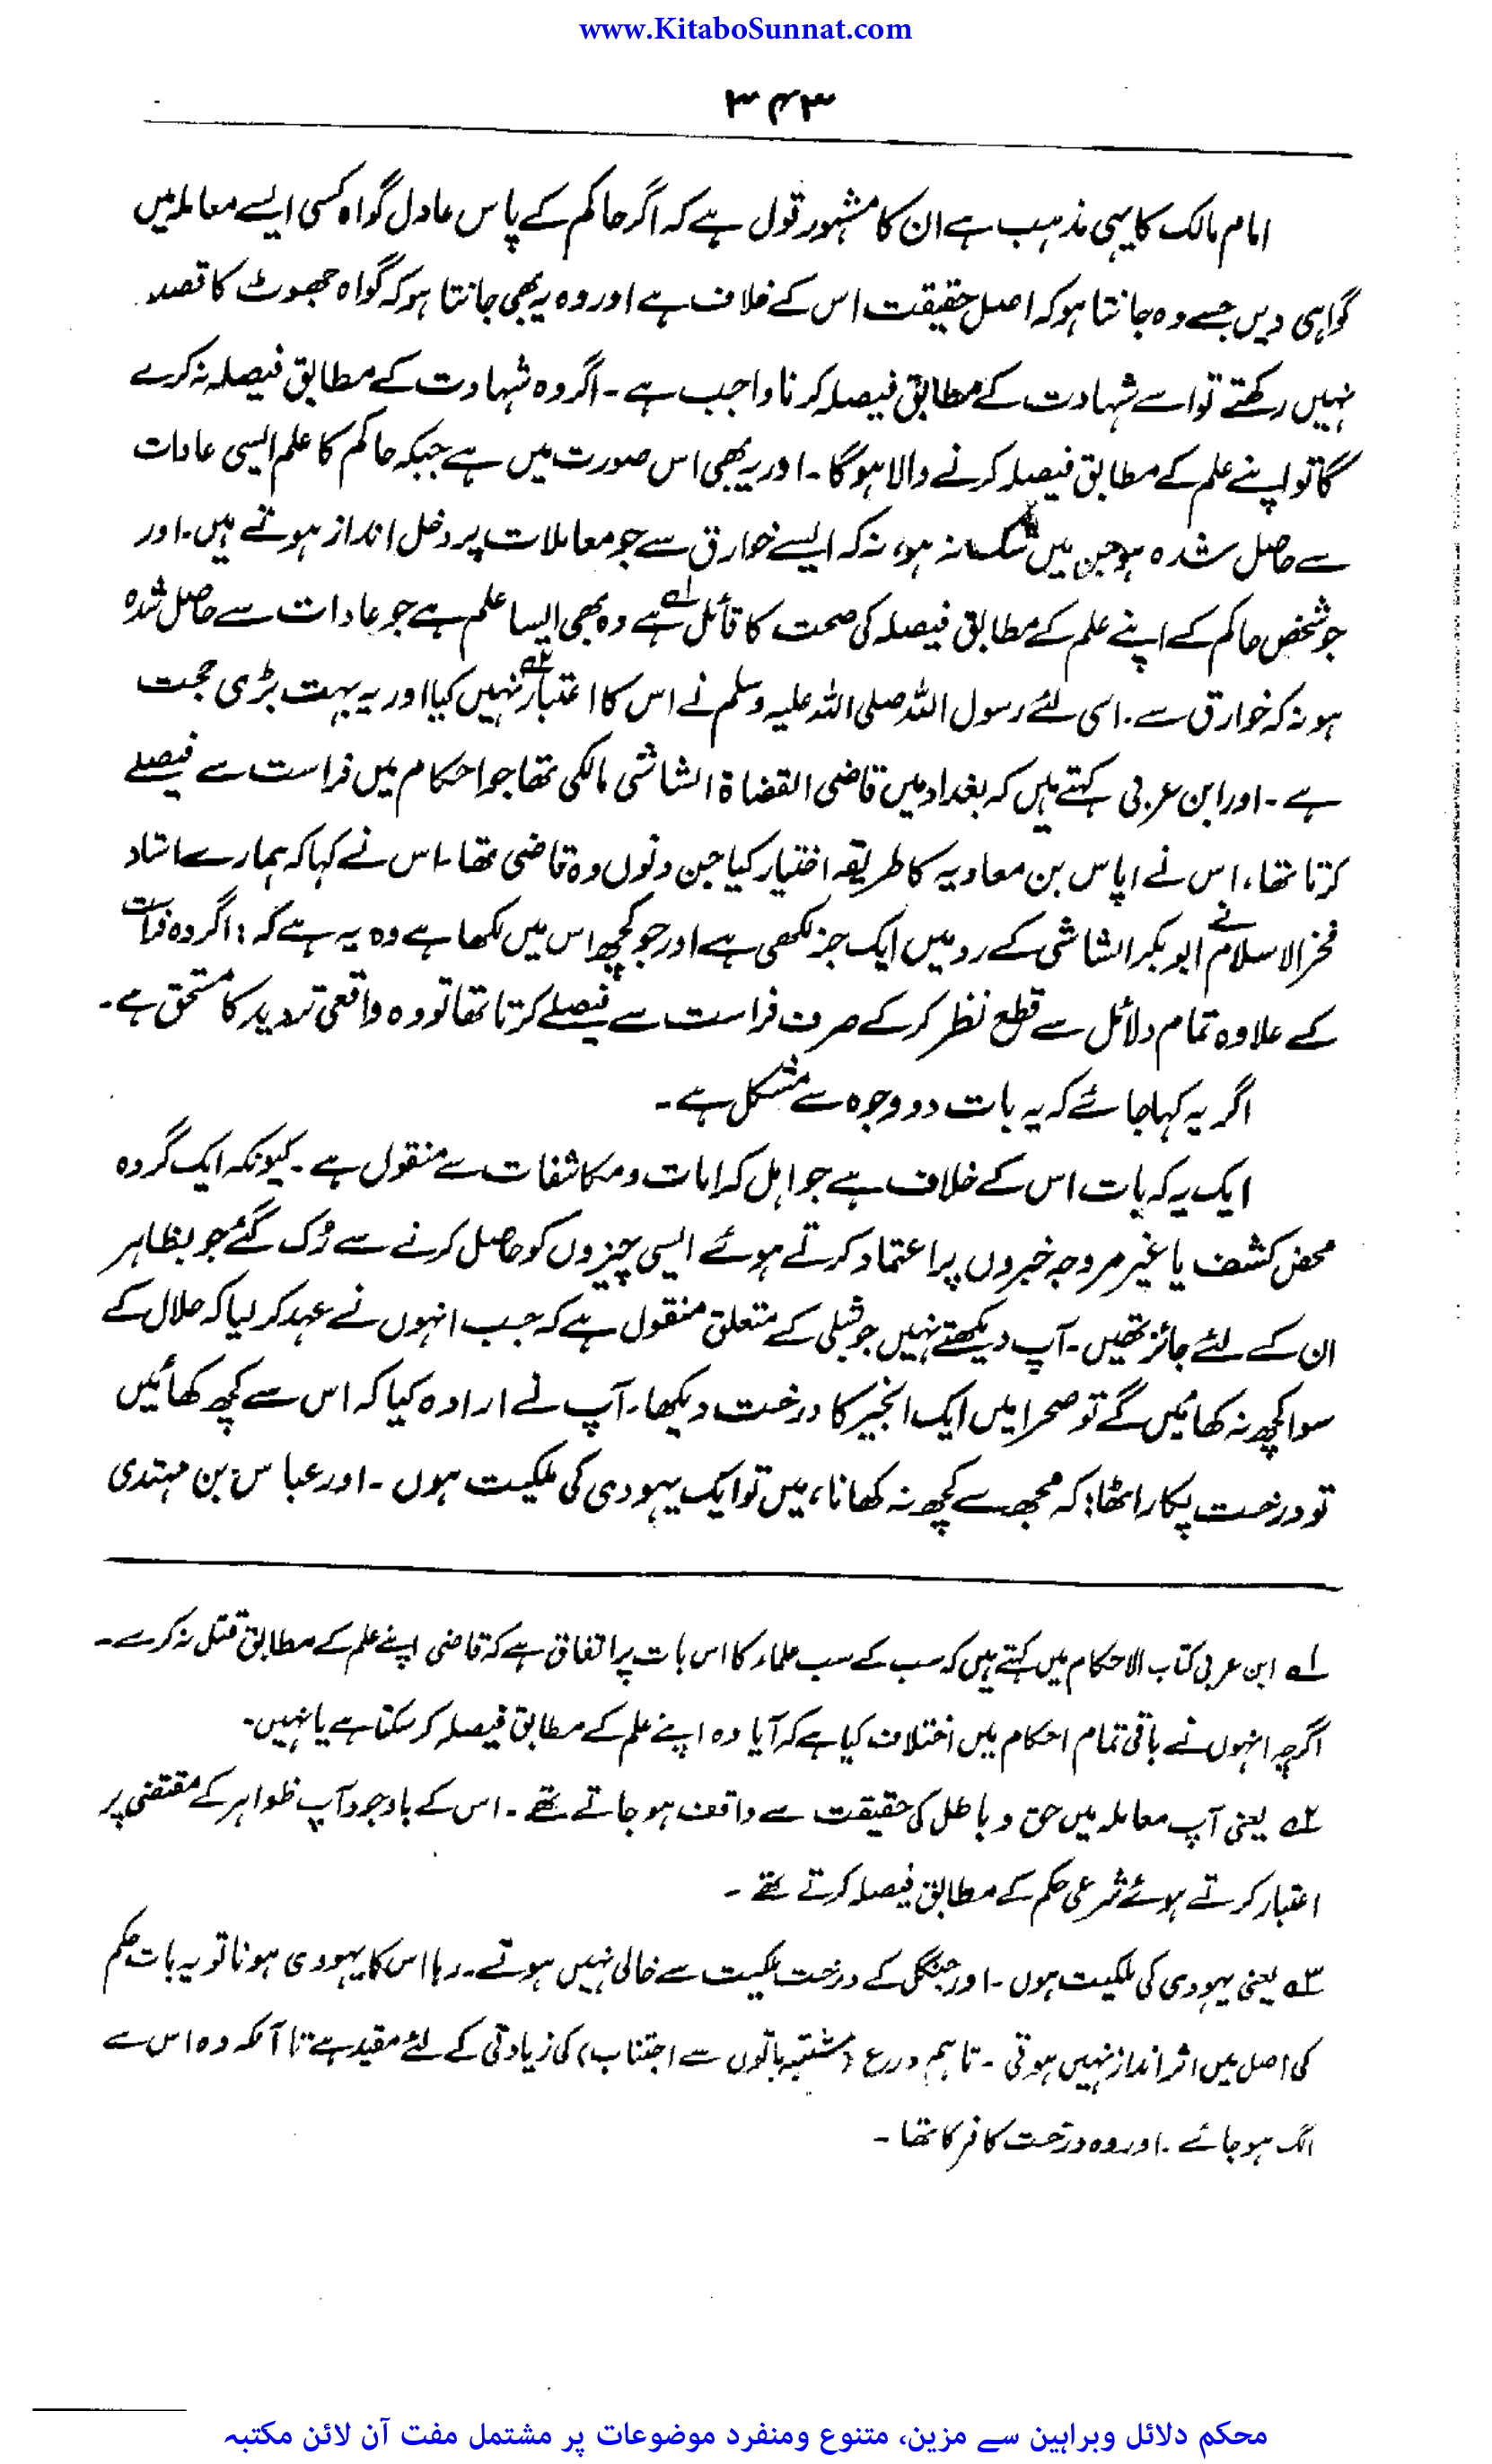 www.KitaboSunnat.com
۳۴۳
امام مالک کا یہی مذہب ہے ان کا مشہور قول ہے کہ اگر حاکم کے پاس عادل گواہ کسی ایسے معاملہ میں
گواہی دیں جسے وہ جانتا ہو کہ اصل حقیقت اس کے خلاف ہے اور وہ یہ بھی جانتا ہو کہ گواہ جھوٹ کا قصد
نہیں رکھتے تو اسے شہادت کے مطابق فیصلہ کرنا واجب ہے ۔ اگر وہ شہادت کے مطابق فیصلہ نہ کرے
گا تو اپنے علم کے مطابق فیصلہ کرنے والا ہو گا ۔ اور یہ بھی اس صورت میں ہے جبکہ حاکم کا علم ایسی عادات
سے حاصل شدہ ہو جن میں شک نہ ہو، نہ کہ ایسے خوارق سے جو معاملات پر دخل انداز ہوتے ہیں ۔ اور
جو شخص حاکم کے اپنے علم کے مطابق فیصلہ کی صحت کا قائل ہے۱ وہ بھی ایسا علم ہے جو عادات سے حاصل شدہ
ہو نہ کہ خوارق سے ۔ اسی لئے رسول اللہ صلی اللہ علیہ وسلم نے اس کا اعتبار۲ نہیں کیا اور یہ بہت بڑی حجت
ہے ۔ اور ابن عربی کہتے ہیں کہ بغداد میں قاضی القضاۃ الشاشی مالکی تھا جو احکام میں فراست سے فیصلے
کرتا تھا، اس نے اپاس بن معاویہ کا طریقہ اختیار کیا جن دنوں وہ قاضی تھا ۔ اس نے کہا کہ ہمارے استاد
فخر الاسلام نے ابوبکر الشاشی کے رد میں ایک جز لکھی ہے اور جو کچھ اس میں لکھا ہے وہ یہ ہے کہ : اگر وہ فراست
کے علاوہ تمام دلائل سے قطع نظر کر کے صرف فراست سے فیصلے کرتا تھا تو وہ واقعی تردید کا مستحق ہے ۔
اگر یہ کہا جائے کہ یہ بات دو وجوہ سے مشکل ہے ۔
ایک یہ کہ بات اس کے خلاف ہے جو اہل کرامات و مکاشفات سے منقول ہے ۔ کیونکہ ایک گروہ
محض کشف یا غیر مروجہ خبروں پر اعتماد کرتے ہوئے ایسی چیزوں کو حاصل کرنے سے رُک گئے جو بظاہر
ان کے لئے جائز تھیں ۔ آپ دیکھتے نہیں جو شبلی کے متعلق منقول ہے کہ جب انہوں نے عہد کر لیا کہ حلال کے
سوا کچھ نہ کھائیں گے تو صحرا میں ایک انجیر کا درخت دیکھا ۔ آپ نے ارادہ کیا کہ اس سے کچھ کھائیں
تو درخت پکار اٹھا: کہ مجھ سے کچھ نہ کھانا، میں تو ایک یہودی کی ملکیت ہوں ۔ اور عباس بن مہتدی
۱؎ ابن عربی کتاب الاحکام میں کہتے ہیں کہ سب کے سب علماء کا اس بات پر اتفاق ہے کہ قاضی اپنے علم کے مطابق قتل نہ کرے ۔
اگرچہ انہوں نے باقی تمام احکام میں اختلاف کیا ہے کہ آیا وہ اپنے علم کے مطابق فیصلہ کر سکتا ہے یا نہیں ۔
۲؎ یعنی آپ معاملہ میں حق و باطل کی حقیقت سے واقف ہو جاتے تھے ۔ اس کے باوجود آپ ظواہر کے مقتضیٰ پر
اعتبار کرتے ہوئے شرعی حکم کے مطابق فیصلہ کرتے تھے ۔
۳؎ یعنی یہودی کی ملکیت ہوں ۔ اور جنگل کے درخت ملکیت سے خالی نہیں ہوتے ۔ رہا اس کا یہودی ہونا تو یہ بات حکم
کی اصل میں اثر انداز نہیں ہوتی ۔ تاہم ورع (مشتبہ باتوں سے اجتناب) کی زیادتی کے لئے مقید ہے تا آنکہ وہ اس سے
الگ ہو جائے ۔ اور وہ درخت کافر کا تھا ۔
محکم دلائل وبراہین سے مزین، متنوع ومنفرد موضوعات پر مشتمل مفت آن لائن مکتبہ